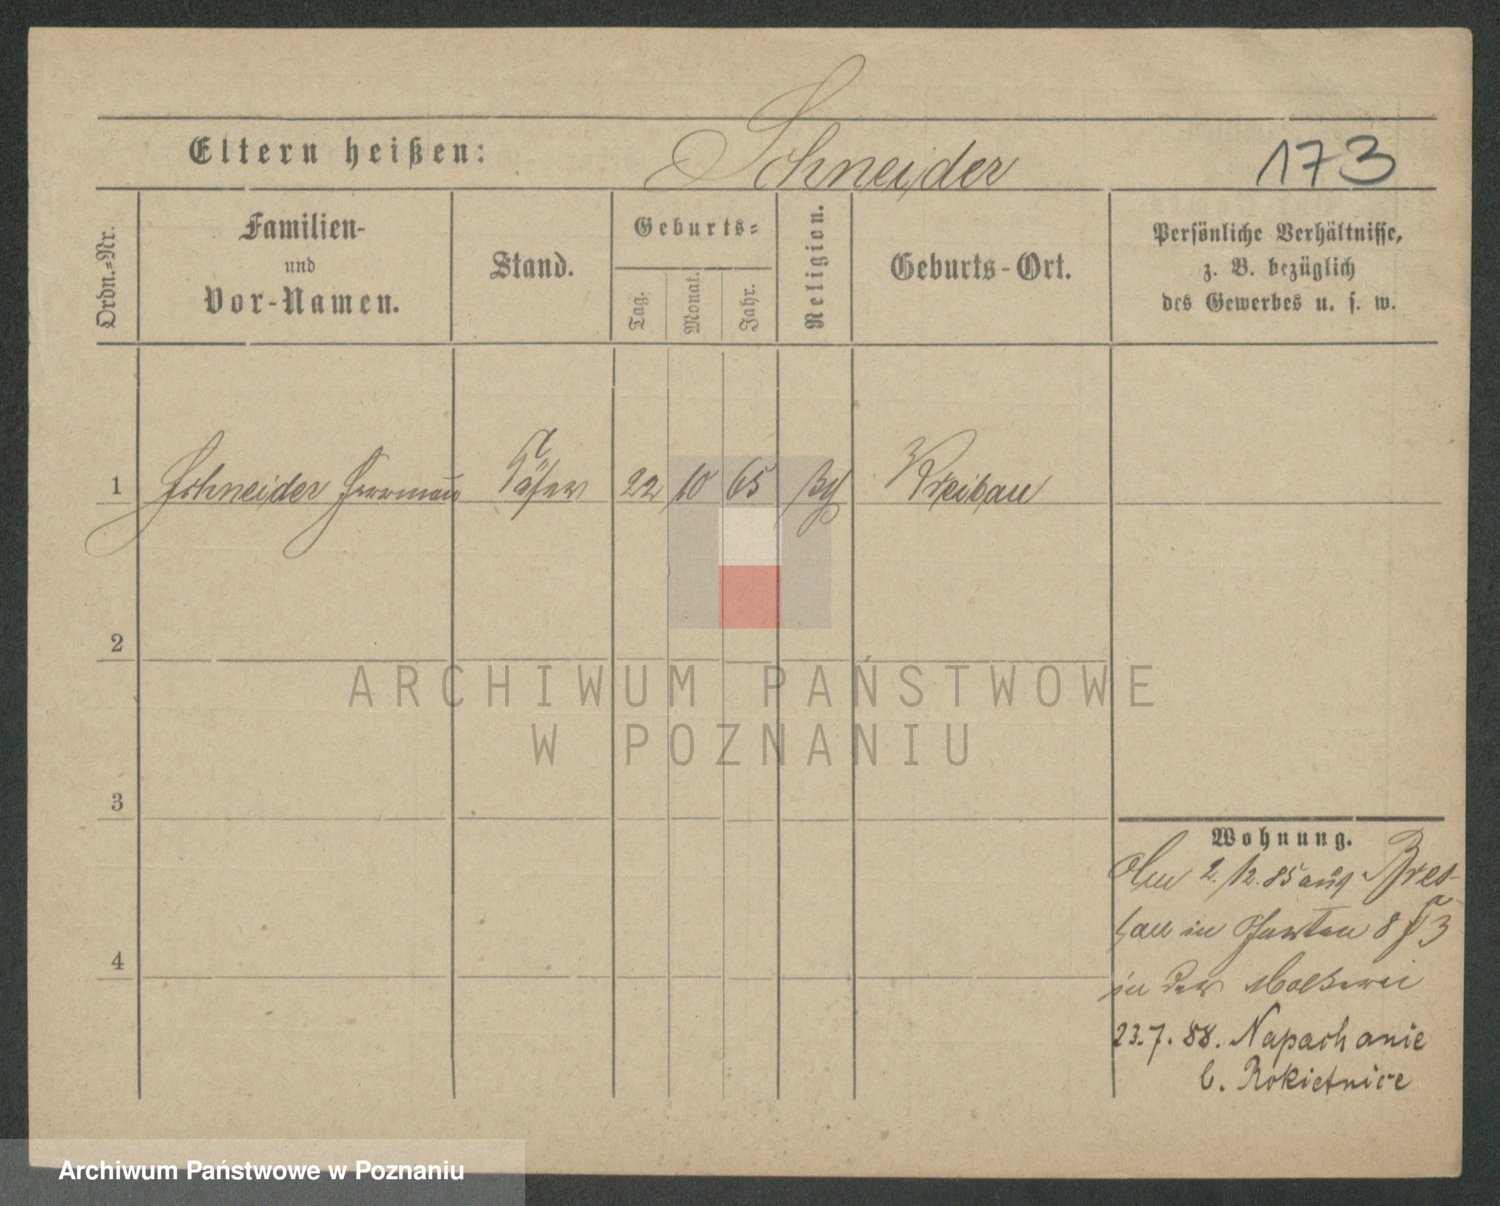 Eltern heißen: Schneider 173
Ordn.=Nr.
Familien-
und
Vor-Namen.
Stand.
Geburts=
Tag.
Monat.
Jahr.
Religion.
Geburts-Ort.
Persönliche Verhältnisse,
z. B. bezüglich
des Gewerbes u. s. w.
1 Schneider Herrmann 22 10 65 Kreibau
2
3
4
Wohnung.
2./12. 85 aus Bres-
lau in Garten 8 3
in der Molkerei
23.7.88. Napachanie
b. Rokietnice
ARCHIWUM PAŃSTWOWE
W POZNANIU
Archiwum Państwowe w Poznaniu